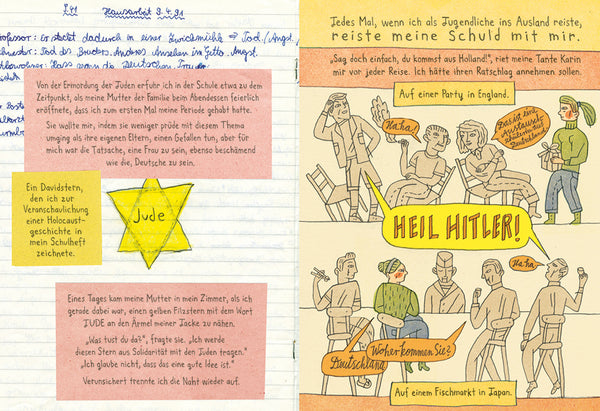 L41 Hausarbeit 9.4.91
Professor: Er steckt dadurch in einer Zwickmühle ⇒ Tod / Angst /
Tod des Bruders. Anderes Ansehen im Getto. Angst.
Hass
Von der Ermordung der Juden erfuhr ich in der Schule etwa zu dem
Zeitpunkt, als meine Mutter der Familie beim Abendessen feierlich
eröffnete, dass ich zum ersten Mal meine Periode gehabt hatte.
Sie wollte mir, indem sie weniger prüde mit diesem Thema
umging als ihre eigenen Eltern, einen Gefallen tun, aber für
mich war die Tatsache, eine Frau zu sein, ebenso beschämend
wie die, Deutsche zu sein.
Ein Davidstern,
den ich zur
Veranschaulichung
einer Holocaust-
geschichte in
mein Schulheft
zeichnete.
Jude
Eines Tages kam meine Mutter in mein Zimmer, als ich
gerade dabei war, einen gelben Filzstern mit dem Wort
JUDE an den Ärmel meiner Jacke zu nähen.
„Was tust du da?", fragte sie. „Ich werde
diesen Stern aus Solidarität mit den Juden tragen."
„Ich glaube nicht, dass das eine gute Idee ist."
Verunsichert trennte ich die Naht wieder auf.
Jedes Mal, wenn ich als Jugendliche ins Ausland reiste,
reiste meine Schuld mit mir.
„Sag doch einfach, du kommst aus Holland!", riet meine Tante Karin
mir vor jeder Reise. Ich hätte ihren Ratschlag annehmen sollen.
Auf einer Party in England.
Haha!
Das ist eine
Austausch-
schülerin aus
Deutschland!
HEIL HITLER!
Ha ha
Woher kommen Sie?
Deutschland
Auf einem Fischmarkt in Japan.